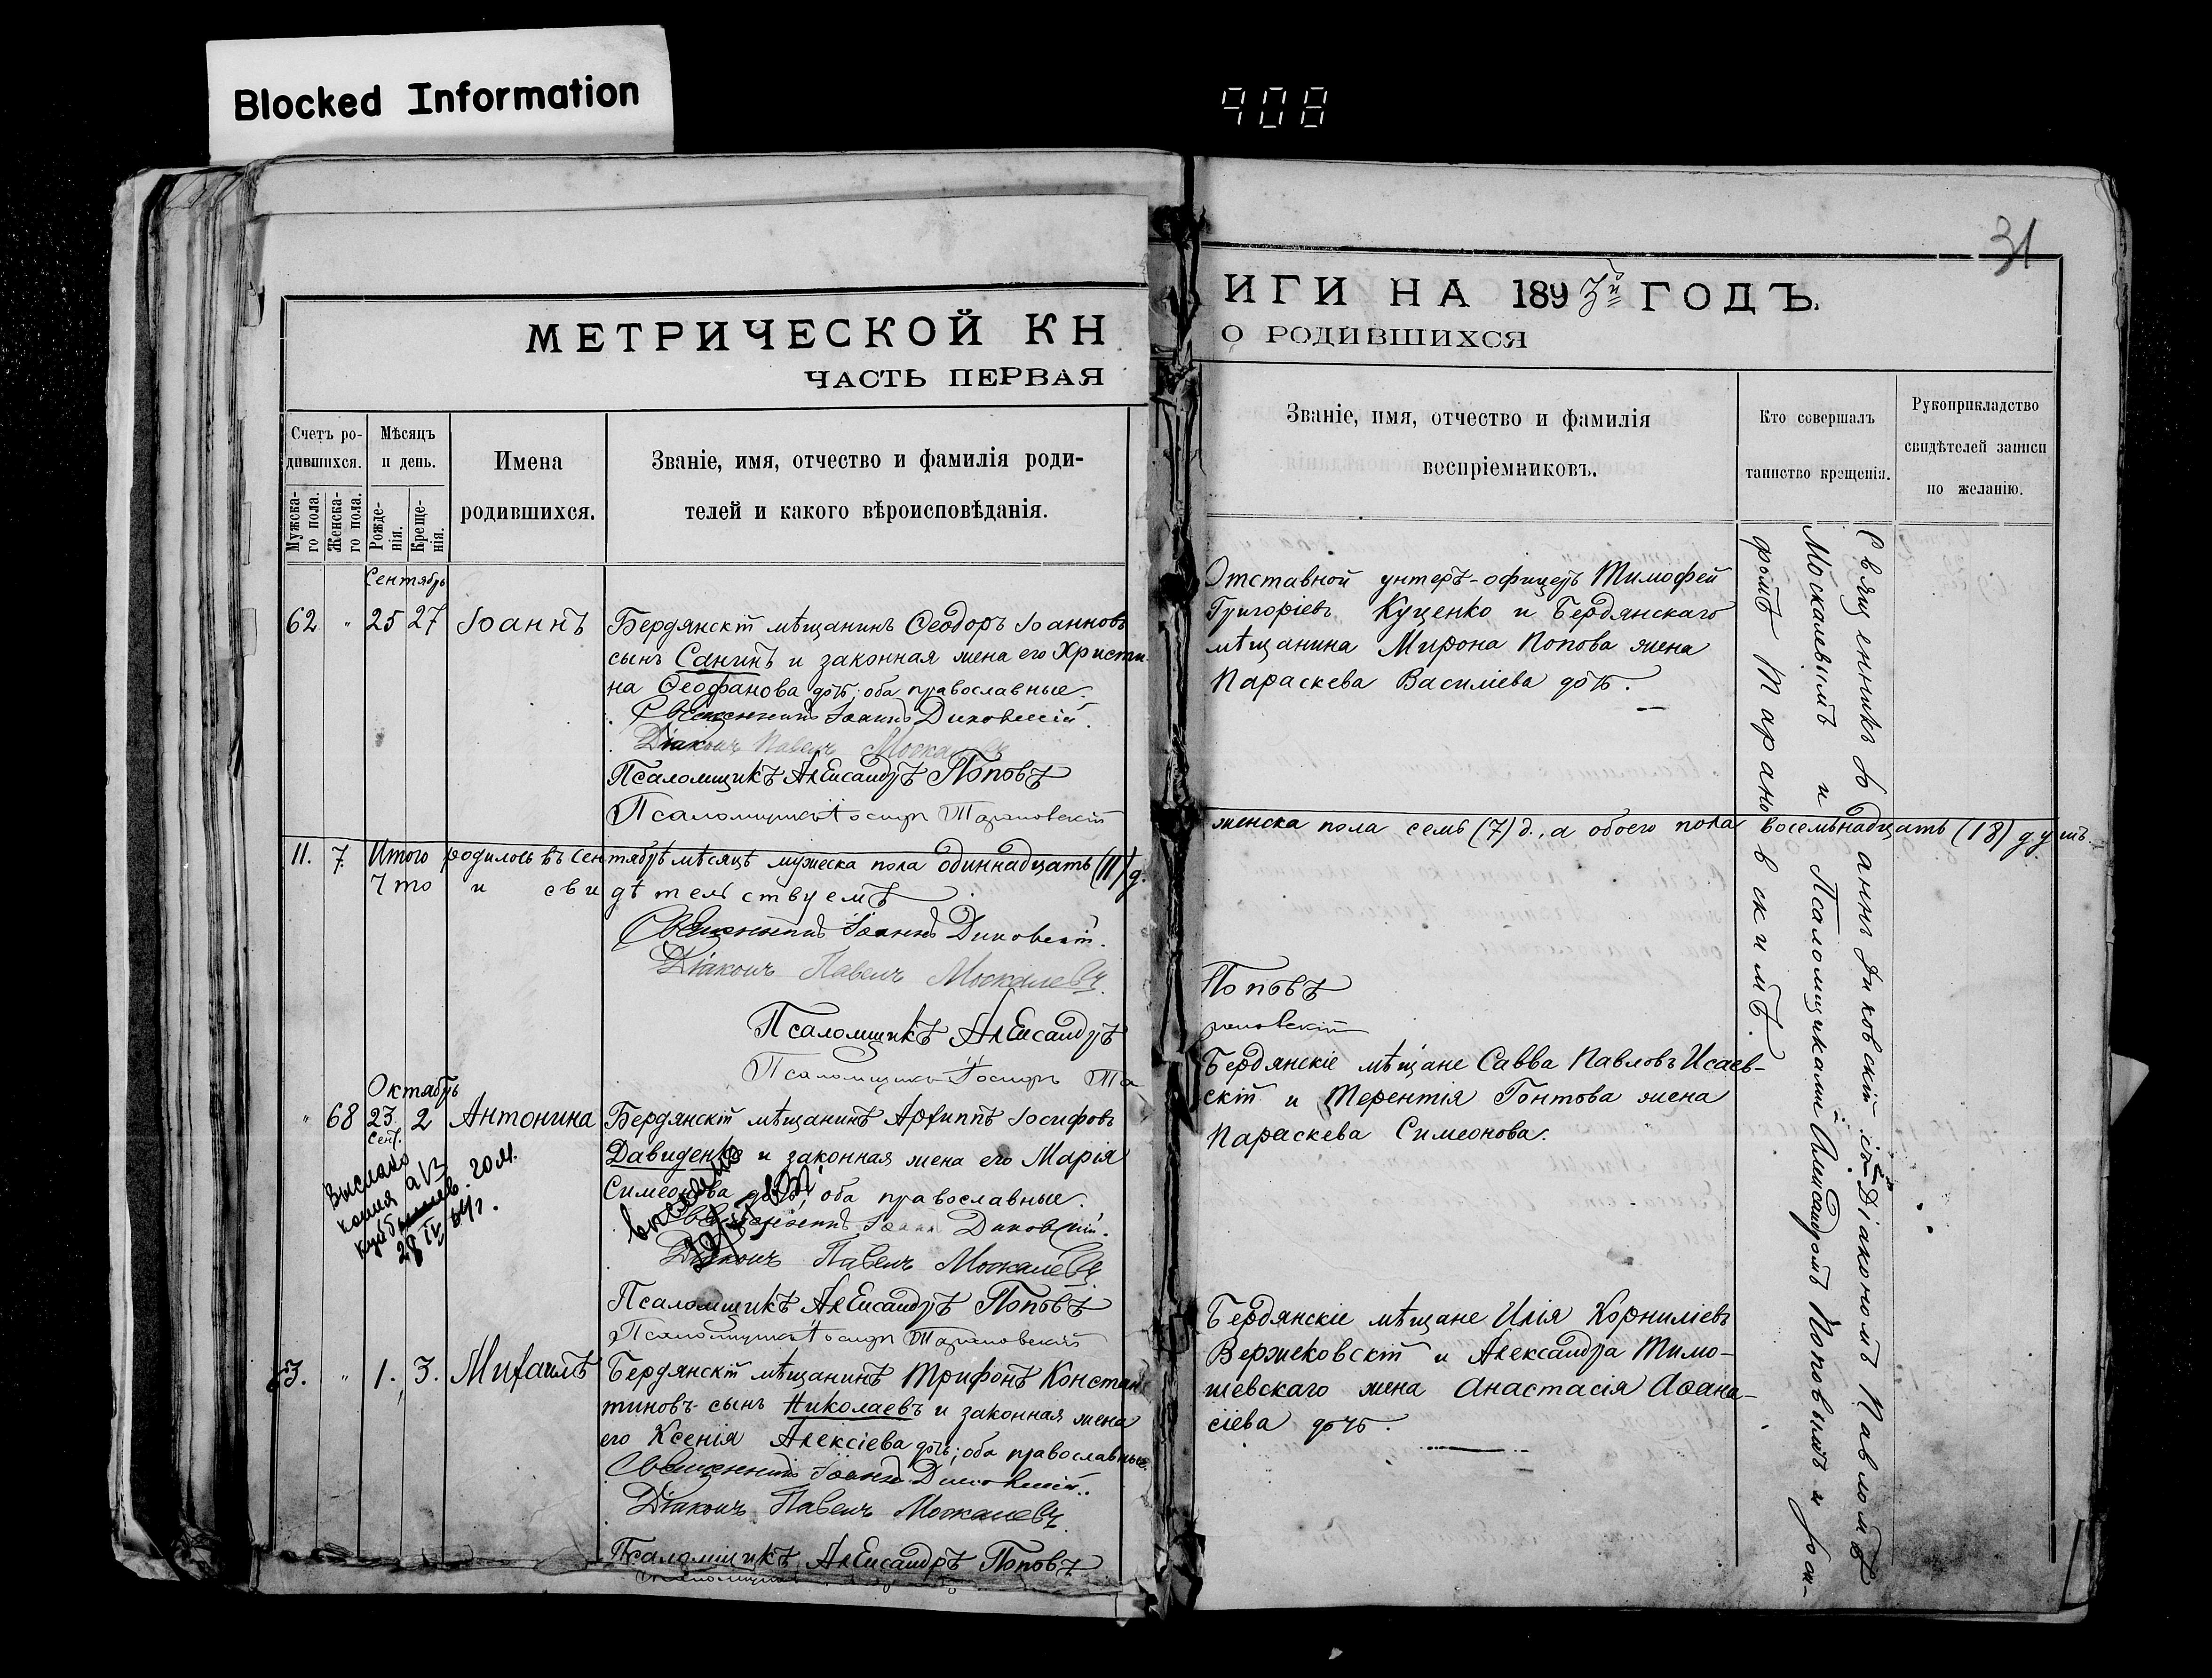 Blocked Information
908
31
МЕТРИЧЕСКОЙ КН
ЧАСТЬ ПЕРВАЯ
Счетъ ро-
дившихся.
Мужска-
го пола.
Женска-
го пола.
Мѣсяцъ
и день.
Рожде-
нія.
Креще-
нія.
Имена
родившихся.
Званіе, имя, отчество и фамилія роди-
телей и какого вѣроисповѣданія.
Сентябрь
62 " 25 27 Іоаннъ
Бердянскій мѣщанинъ Ѳеодоръ Іоанновъ
сынъ Сангинъ и законная жена его Христи-
на Ѳеофанова дочь; оба православные.
Священникъ Іоаннъ Диковскій.
Діаконъ Павелъ Москалевъ
Псаломщикъ Александръ Поповъ
Псаломщикъ Іосифъ Тарановскій
11. 7. Итого родилось въ Сентябрѣ мѣсяцѣ мужеска пола одиннадцать (11) д.
Что и свидѣтельствуемъ
Священникъ Іоаннъ Диковскій.
Діаконъ Павелъ Москалевъ.
Псаломщикъ Александръ
Псаломщикъ Іосифъ Та
Октябрь
" 68 23. Сент. 2 Антонина
Бердянскій мѣщанинъ Архиппъ Іосифовъ
Давиденко и законная жена его Марія
Симеонова дочь; оба православные.
Священникъ Іоаннъ Диковскій.
Діаконъ Павелъ Москалевъ.
Псаломщикъ Александръ Поповъ
Псаломщикъ Іосифъ Тарановскій
Выслано
копия
28 IV
выслано
63. " 1. 3. Михаилъ
Бердянскій мѣщанинъ Трифонъ Констан-
тиновъ сынъ Николаевъ и законная жена
его Ксенія Алексіева дочь; оба православные.
Священникъ Іоаннъ Диковскій.
Діаконъ Павелъ Москалевъ.
Псаломщикъ Александръ Поповъ
ИГИ НА 1893й ГОДЪ.
О РОДИВШИХСЯ
Званіе, имя, отчество и фамилія
воспріемниковъ.
Кто совершалъ
таинство крещенія.
Рукоприкладство
свидѣтелей записи
по желанію.
Отставной унтеръ-офицеръ Тимофей
Григоріевъ Куценко и Бердянскаго
мѣщанина Мирона Попова жена
Параскева Василіева дочь.
женска пола семь (7) д., а обоего пола восемьнадцать (18) душъ.
Поповъ
рановскій
Бердянскіе мѣщане Савва Павловъ Исаев-
скій и Терентія Гонтова жена
Параскева Симеонова.
Бердянскіе мѣщане Илія Корниліевъ
Вержековскій и Александра Тимо-
шевскаго жена Анастасія Аѳана-
сіева дочь.
Священникъ Іоаннъ Диковскій съ Діакономъ Павломъ
Москалевымъ и Псаломщиками Александромъ Поповымъ и Іоси-
фомъ Тарановскимъ.